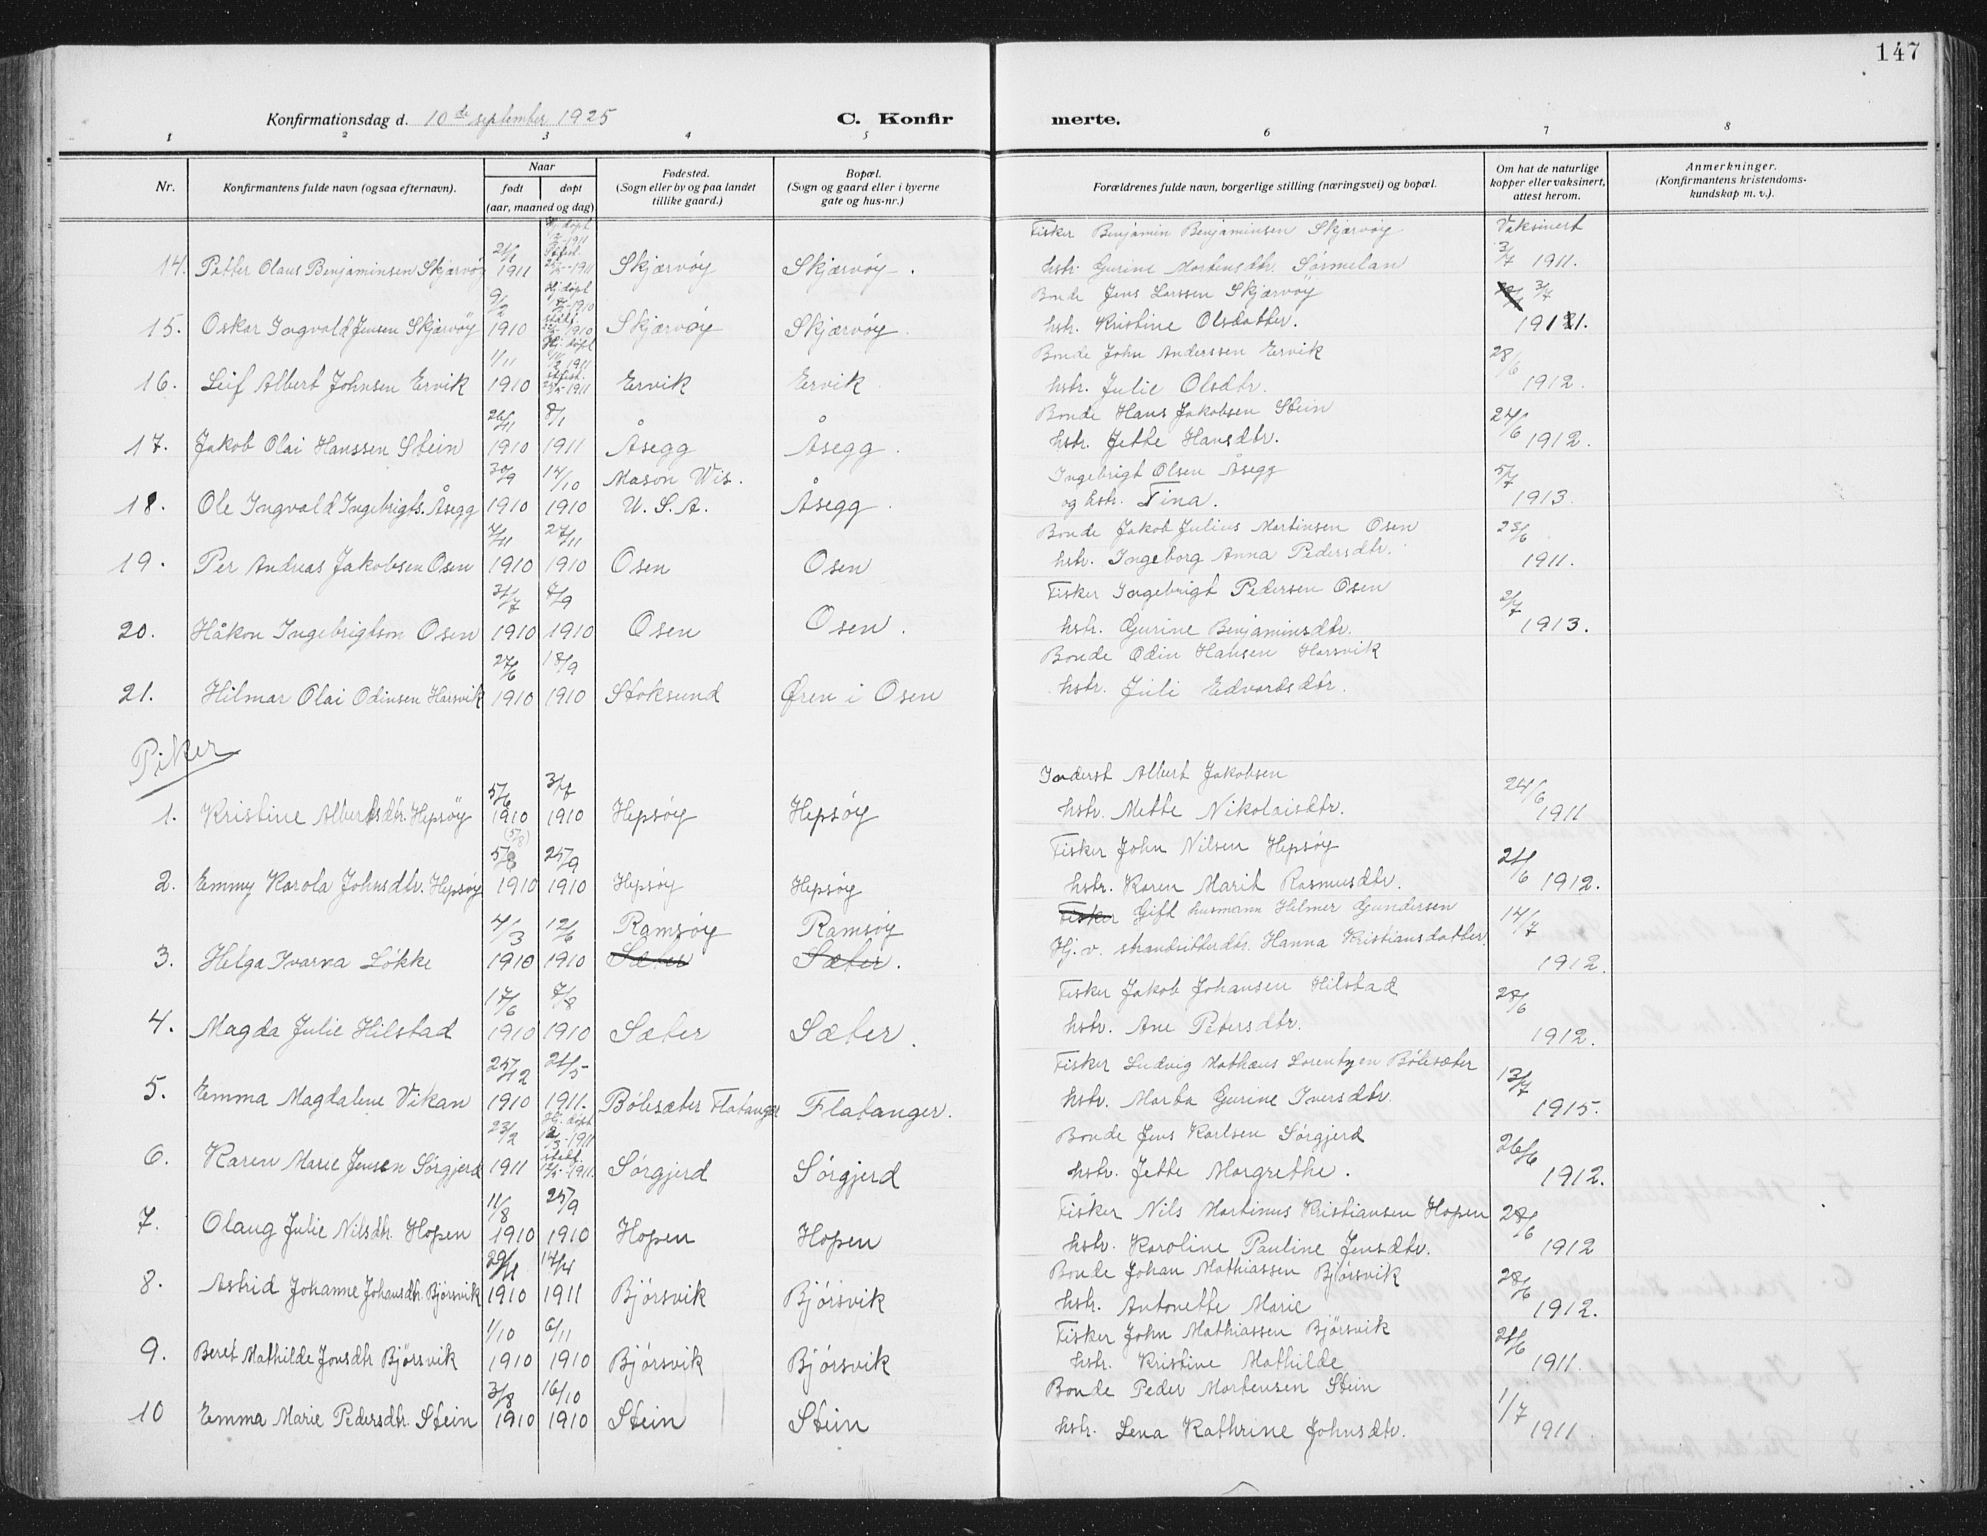 147
Konfirmationsdag d. 10de september 1925 C. Konfir merte.
1 2 3 4 5 6 7 8
Nr. Konfirmantens fulde navn (ogsaa efternavn). Naar født døpt (aar, maaned og dag) Fødested. (Sogn eller by og paa landet tillike gaard.) Bopæl. (Sogn og gaard eller i byerne gate og hus-nr.) Forældrenes fulde navn, borgerlige stilling (næringsvei) og bopæl. Om hat de naturlige kopper eller vaksinert, attest herom. Anmerkninger. (Konfirmantens kristendoms-kundskap m. v.).
Fisker Benjamin Benjaminsen Skjærvøy Vaksinert
14. Petter Olaus Benjaminsen Skjærvøy 1911 Skjærvøy Skjærvøy. hstr. Gurine Mortensdtr. Sørmelan 3/7 1911.
9/2 Hj. døpt Bonde Jens Larssen Skjærvøy 3/7
15. Oskar Ingvald Jensen Skjærvøy 1910 Skjærvøy Skjærvøy. hstr. Kristine Olsdatter. 1911.
1/11 Hj. døpt Bonde John Anderssen Ervik 28/6
16. Leif Albert Johnsen Ervik 1910 Ervik Ervik. hstr. Julie Olsdtr. 1912.
26/11 8/1 Bonde Hans Jakobsen Stein 24/6
17. Jakob Olai Hanssen Stein 1910 1911 Åsegg Åsegg. hstr. Jette Hansdtr. 1912.
30/9 14/10 Mason Wis. Ingebrigt Olsen Åsegg 5/7
18. Ole Ingvald Ingebrigts. Åsegg 1910 1910 U. S. A. Åsegg. og hstr. Tina. 1913.
7/11 27/11 Bonde Jakob Julius Martinsen Osen 25/6
19. Per Andreas Jakobsen Osen 1910 1910 Osen Osen hstr. Ingeborg Anna Pedersdtr. 1911.
31/7 4/9 Fisker Ingebrigt Pedersen Osen 2/7
20. Håkon Ingebrigtson Osen 1910 1910 Osen Osen. hstr. Gurine Benjaminsdtr. 1913.
27/6 18/9 Bonde Odin Hansen Harsvik
21. Hilmar Olai Odinsen Harsvik 1910 1910 Stoksund Øren i Osen hstr. Juli Edvardsdtr.
Piker
5/6 3/7 Inderst Albert Jakobsen 24/6
1. Kristine Albertsdtr. Hepsøy 1910 1910 Hepsøy Hepsøy hstr. Mette Nikolaisdtr. 1911
(5/8)
5/8 25/9 Fisker John Nilsen Hepsøy 21/6
2. Emmy Karola Johnsdtr. Hepsøy 1910 1910 Hepsøy Hepsøy hstr. Karen Marit Rasmusdtr. 1912.
4/3 12/6 Ramsøy Ramsøy Fisker Gift husmann Helmer Gundersen 14/7
3. Helga Ivarva Løkke 1910 1910 Sæter Sæter. Hj. v. strandsitterdtr. Hanna Kristiansdatter. 1912.
17/6 7/8 Fisker Jakob Johansen Hilstad 28/6
4. Magda Julie Hilstad 1910 1910 Sæter Sæter. hstr. Ane Petersdtr. 1912.
25/12 21/5 Fisker Ludvig Mathæus Lorentzen Bølesæter 13/7
5. Emma Magdalene Vikan 1910 1911. Bølesæter Flatanger Flatanger. hstr. Marta Gurine Iversdtr. 1915.
23/2 Hj. døpt 12/3-1911 Bonde Jens Karlsen Sørgjerd 26/6
6. Karen Marie Jensen Sørgjerd 1911 Sørgjerd Sørgjerd hstr. Jette Margrethe. 1912.
11/8 25/9 Fisker Nils Martinus Kristiansen Hopen 28/6
7. Olaug Julie Nilsdtr. Hopen 1910 1910 Hopen Hopen hstr. Karoline Pauline Jensdtr. 1912
29/11 14/4 Bonde Johan Mathiassen Bjørsvik 28/6
8. Astrid Johanne Johansdtr. Bjørsvik 1910 1911 Bjørsvik Bjørsvik hstr. Antonette Marie 1912.
1/10 6/11 Fisker John Mathiassen Bjørsvik 21/6
9. Beret Mathilde Jonsdtr Bjørsvik 1910 1910 Bjørsvik Bjørsvik hstr. Kristine Mathilde 1911.
3/8 16/10 Bonde Peder Mortensen Stein 1/7
10 Emma Marie Pedersdtr. Stein 1910 1910 Stein Stein hstr. Lena Kathrine Johnsdtr. 1911